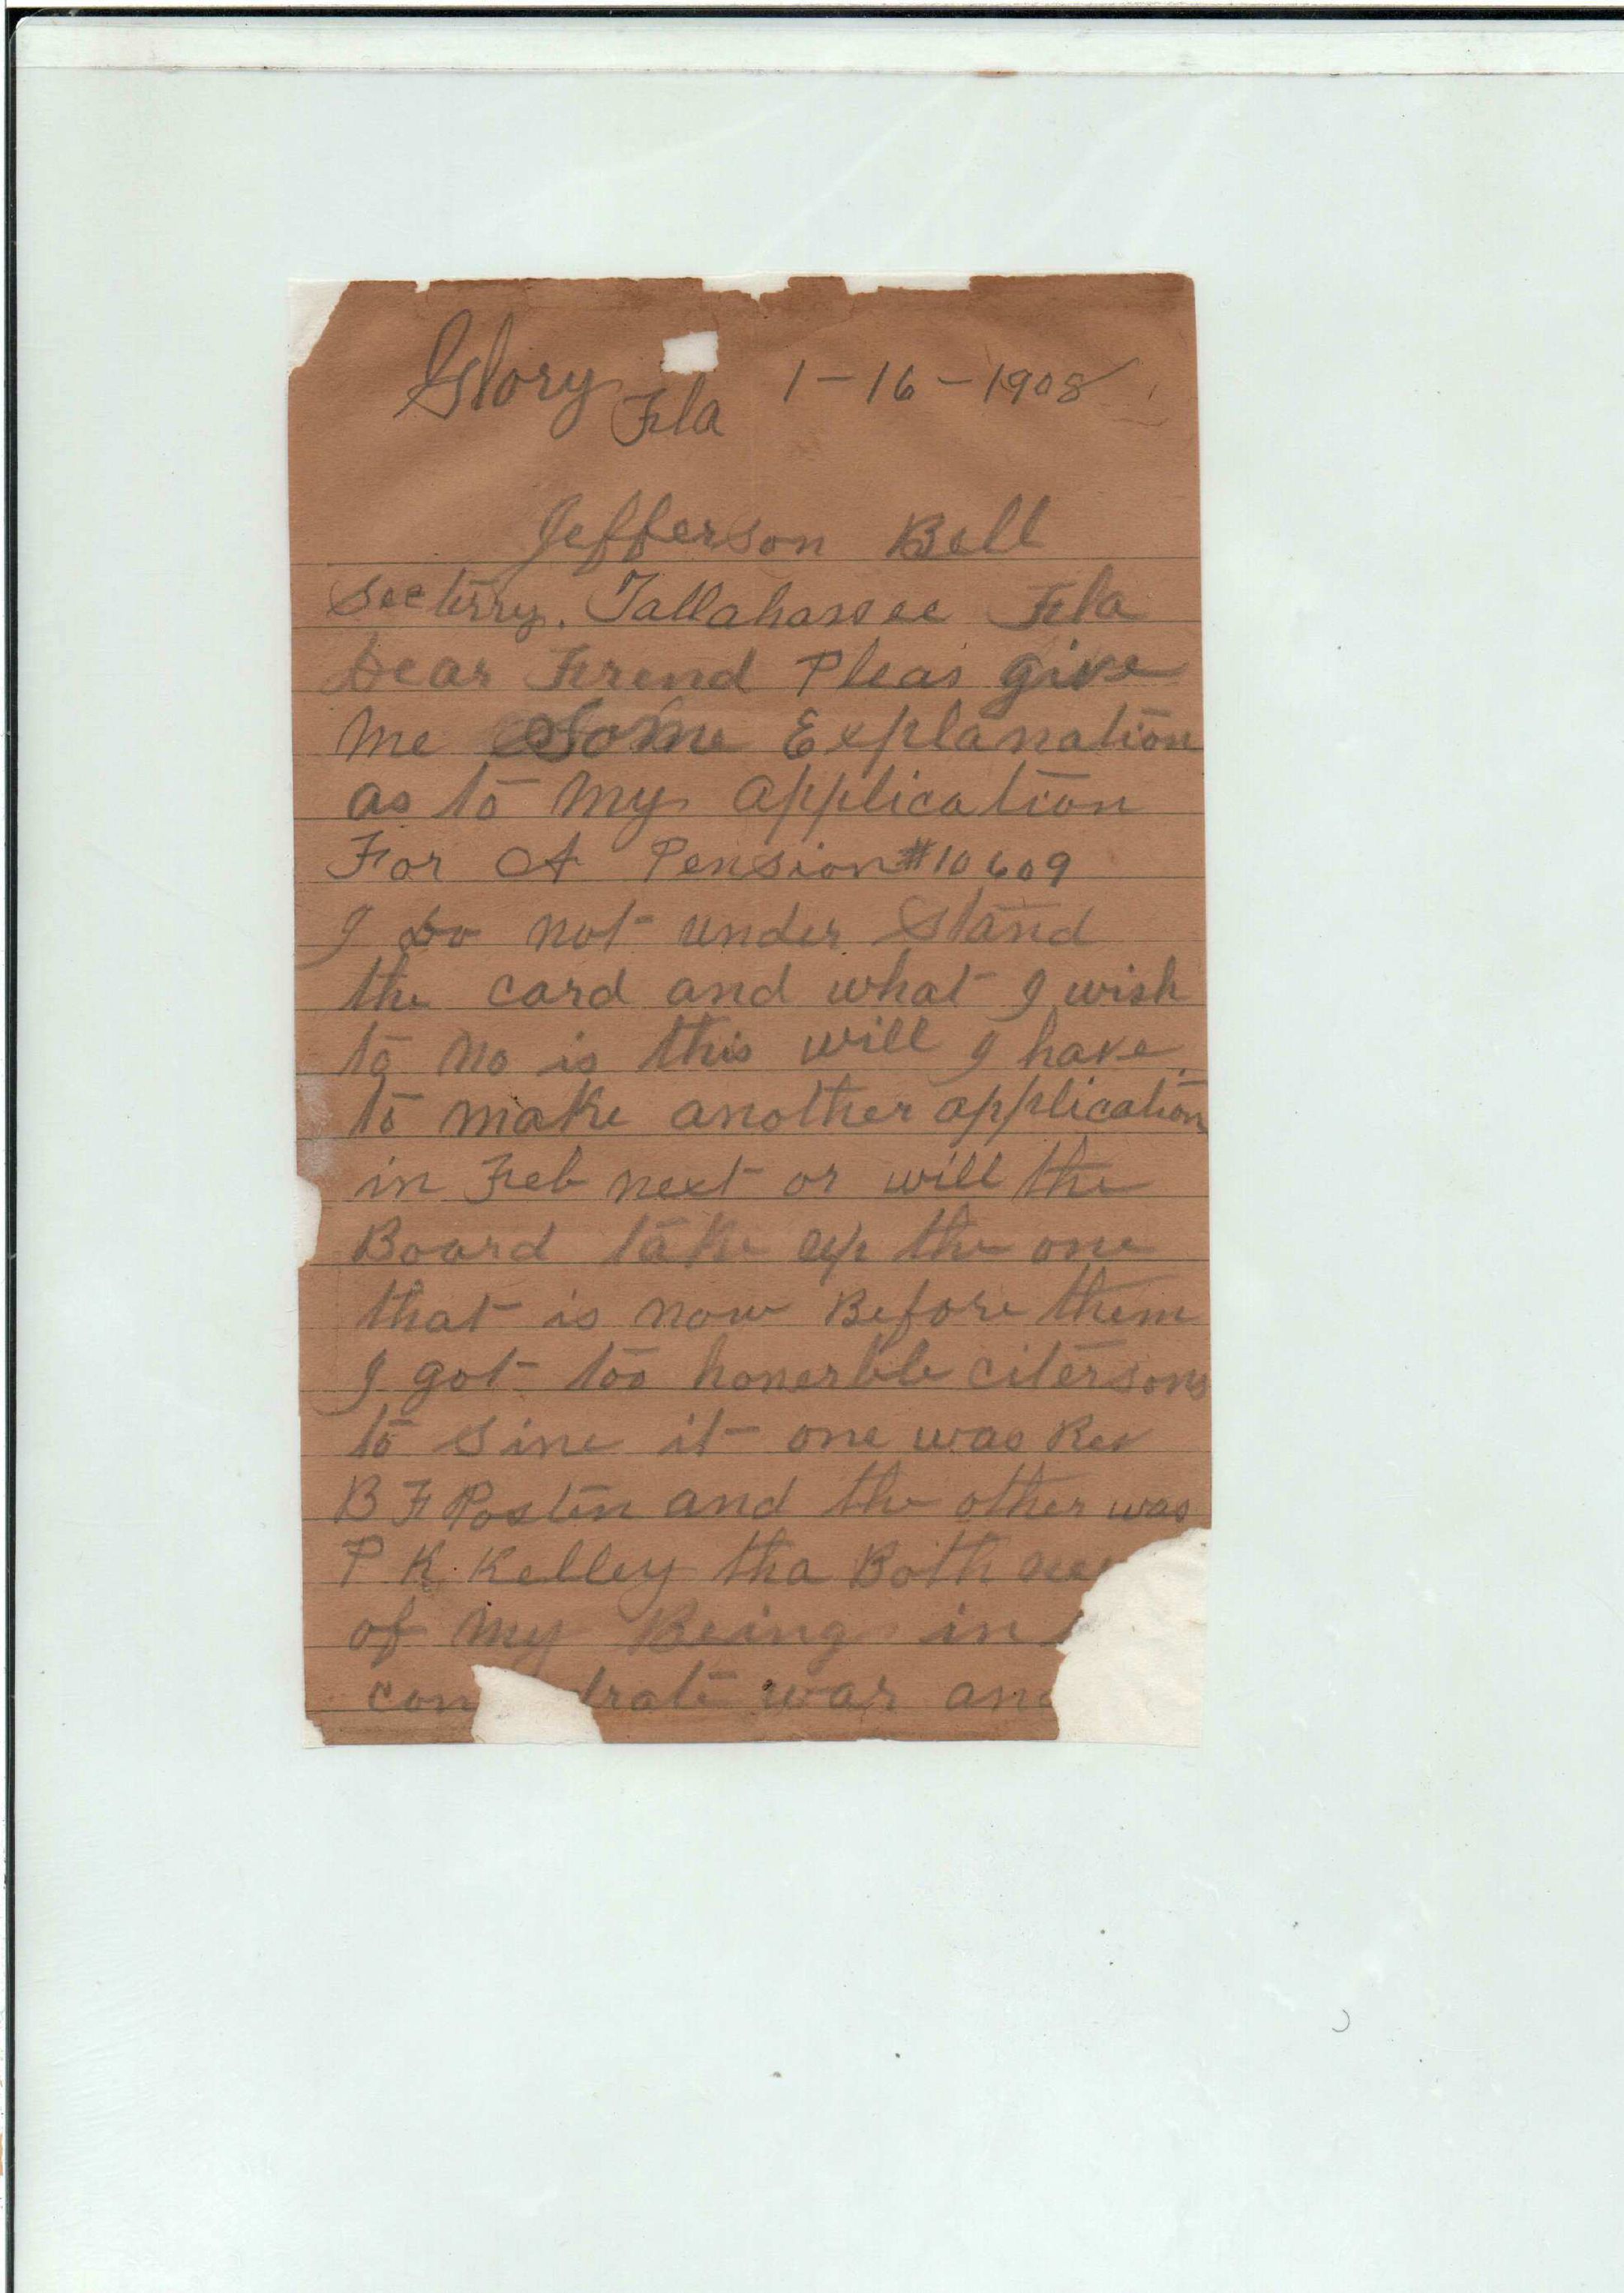 Glory Fla 1-16-1908
Jefferson Bell
Secterry. Tallahassee Fla
Dear Frend Pleas give
me Some Explanation
as to my application
For A Pension #10609
I Do not under Stand
the card and what I wish
to no is this will I have
to make another application
in Feb next or will the
Board take up the one
that is now Before them
I got too honerble citersons
to sine it one was Rev
B F Posten and the other was
P K Kelley tha Both
of my Being in
con drate war and